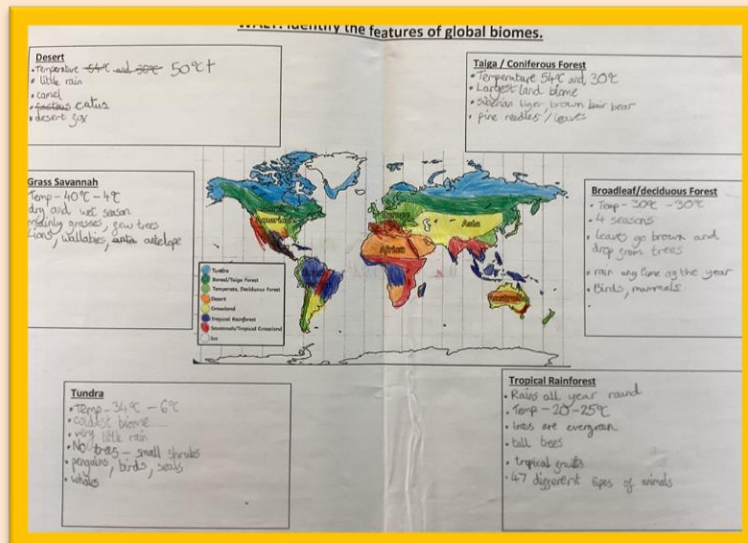 WALT: Identify the features of global biomes.
Desert
• Temperature -54°C and 30°C 50°C+
• little rain
• camel
• cactus
• desert fox
Taiga / Coniferous Forest
• Temperature 54°C and, 30°C
• Largest land biome
• Siberian tiger, brown bair bear
• pine needles / leaves
Grass Savannah
Temp - 40°C - 4°C
dry and wet season
mainly grasses, few trees
Lions, wallabies, antelope
Broadleaf/deciduous Forest
• Temp - 30°C - 30°C
• 4 seasons
• leaves go brown and
drop from trees
• rain any time of the year
• Birds, mammals
America
Europe
Asia
Africa
Australia
Tundra
Boreal/Taiga Forest
Temperate, Deciduous Forest
Desert
Grassland
Tropical Rainforest
Savannah/Tropical Grassland
Ice
Tundra
• Temp - 34°C - 6°C
• coldest biome
• very little rain
• No trees - small shrubs
• penguins, birds, seals
• whales
Tropical Rainforest
• Rains all year round
• Temp - 20-25°C
• trees are evergreen
• tall trees
• tropical fruits
• 47 different types of animals